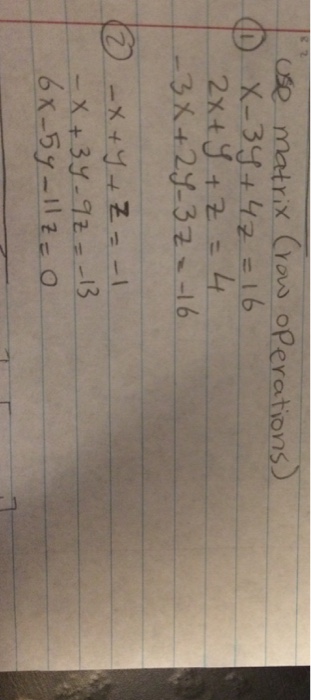 use matrix (row operations)
① x-3y+4z=16
2x+y+z=4
-3x+2y-3z=-16
② -x+y+z=-1
-x+3y-9z=-13
6x-5y-11z=0